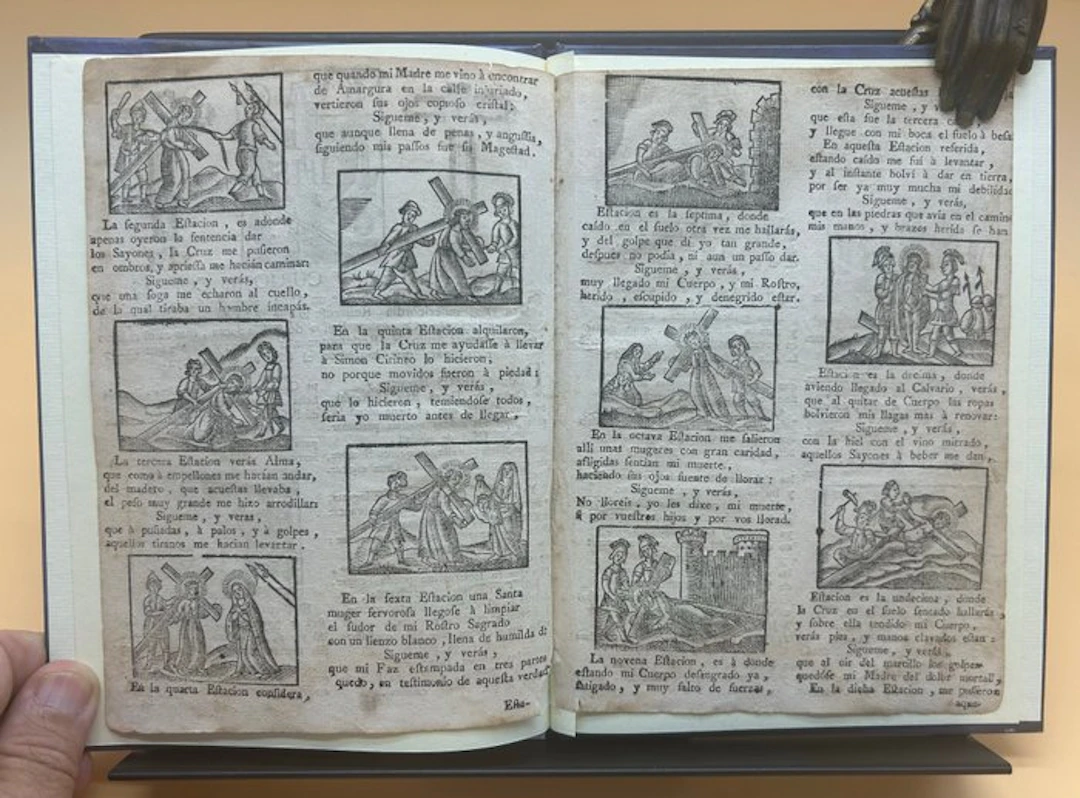 La segunda Estacion, es adonde
apenas oyeron la sentencia dar
los Sayones, la Cruz me pusieron
en ombros, y apriessa me hacian caminar:
Sigueme, y verás,
que una soga me echaron al cuello,
de la qual tiraba un hombre incapás.
La tercera Estacion verás Alma,
que como à empellones me hacian andar,
del madero, que acuestas llevaba,
el peso muy grande me hizo arrodillar:
Sigueme, y veras,
que à puñadas, à palos, y à golpes,
aquellos tiranos me hacian levantar.
En la quarta Estacion considera,
que quando mi Madre me vino à encontrar
de Amargura en la calle injuriado,
vertieron sus ojos copioso cristal:
Sigueme, y verás,
que aunque llena de penas, y angustia,
siguiendo mis passos fue su Magestad.
En la quinta Estacion alquilaron,
para que la Cruz me ayudasse à llevar
à Simon Cirineo lo hicieron,
no porque movidos fueron à piedad:
Sigueme, y verás,
que lo hicieron, temiendose todos,
seria yo muerto antes de llegar.
En la sexta Estacion una Santa
muger fervorosa llegose à limpiar
el sudor de mi Rostro Sagrado
con un lienzo blanco, llena de humilda d:
Sigueme, y verás,
que mi Faz estampada en tres partes
quedo, en testimonio de aquesta verdad
Esta-
Estacion es la septima, donde
caído en el suelo otra vez me hallarás,
y del golpe que dí yo tan grande,
despues no podia, ni aun un passo dar.
Sigueme, y verás,
muy llegado mi Cuerpo, y mi Rostro,
herido, escupido, y denegrido estar.
En la octava Estacion me salieron
alli unas mugeres con gran caridad,
afligidas sentian mi muerte,
haciendo sus ojos fuente de llorar:
Sigueme, y verás,
No lloreis, yo les dixe, mi muerte,
si por vuestros hijos y por vos llorad.
La novena Estacion, es à donde
estando mi Cuerpo desangrado ya,
fatigado, y muy falto de fuerzas,
con la Cruz acuestas
Sigueme, y
que esta fue la tercera
y llegue con mi boca el suelo à besa
En aquesta Estacion referida,
estando caído me fuí à levantar,
y al instante bolví à dar en tierra,
por ser ya muy mucha mi debilidad
Sigueme, y verás,
que en las piedras que avia en el camino
mis manos, y brazos herida se han
Estacion es la decima, donde
aviendo llegado al Calvario, verás,
que al quitar de Cuerpo las ropas
bolvieron mis llagas mas à renovar:
Sigueme, y verás,
con la hiel con el vino mirrado,
aquellos Sayones à beber me dan.
Estacion es la undecima, donde
la Cruz en el suelo sentado hallarás,
y sobre ella tendido mi Cuerpo,
verás pies, y manos clavados estan:
Sigueme, y verás,
que al oir del martillo los golpes
quedóse mi Madre del dolor mortal,
En la dicha Estacion, me pusieron
aqua-